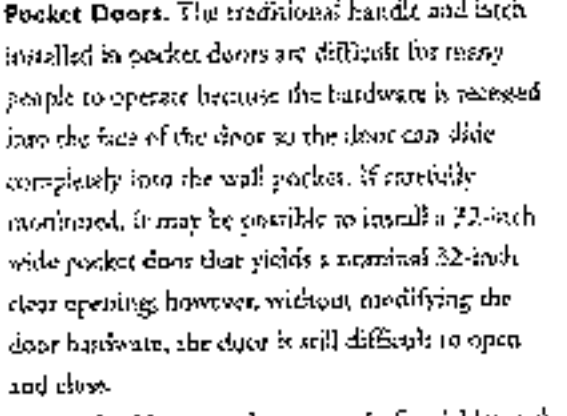 Pocket Doors. The traditional handle and latch
installed in pocket doors are difficult for many
people to operate because the hardware is recessed
into the face of the door so the door can slide
completely into the wall pocket. If carefully
monitored, it may be possible to install a 32-inch
wide pocket door that yields a nominal 32-inch
clear opening; however, without modifying the
door hardware, the door is still difficult to open
and close.